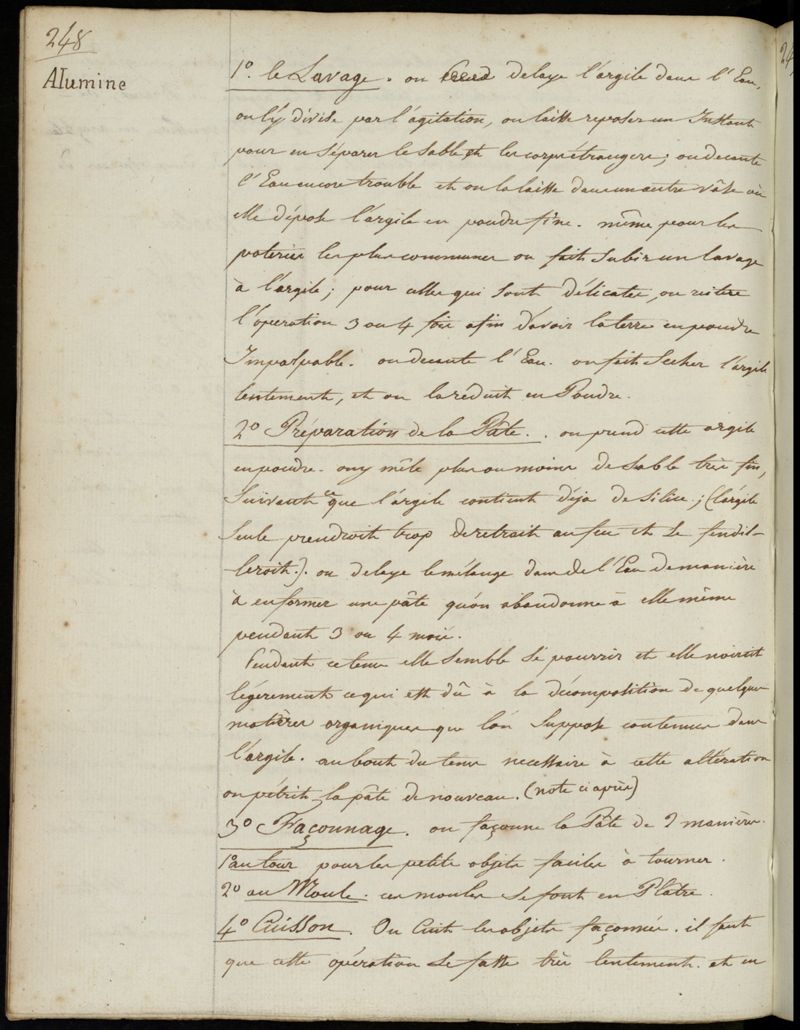 248
Alumine
1º. le Lavage. on delaye l'argile dans l'Eau,
on l'y divise par l'agitation, on laisse reposer un Instant
pour en séparer le sable et les corps étrangers; on decante
l'Eau encore trouble et on la laisse dans un autre vâse où
elle dépose l'argile en poudre fine. même pour les
poteries les plus communes on fait subir un lavage
à l'argile; pour celles qui sont délicates, on réitère
l'operation 3 ou 4 fois afin d'avoir la terre en poudre
Impalpable. on decante l'Eau. on fait secher l'argile
lentement, et on la réduit en Poudre.
2º Préparation de la Pâte. on prend cette argile
en poudre. on y mêle plus ou moins de sable très fin,
suivant ce que l'argile contient déja de silice; (l'argile
seule prendroit trop de retrait au feu et se fendil-
leroit.). on delaye le mélange dans de l'Eau de manière
à en former une pâte qu'on abandonne à elle même
pendant 3 ou 4 mois.
Pendant ce tems elle semble se pourrir et elle noircit
légèrement ce qui est dû à la décomposition de quelques
matières organiques que l'on suppose contenues dans
l'argile. au bout du tems necessaire à cette altération
on pétrit la pâte de nouveau. (note ci après)
3º Façonnage. on façonne la Pâte de 2 manières.
1º au tour pour les petits objets faciles à tourner.
2º au Moule. ces moules se font en Plâtre.
4º Cuisson. On Cuit les objets façonnés. il faut
que cette opération se fasse très lentement. et en